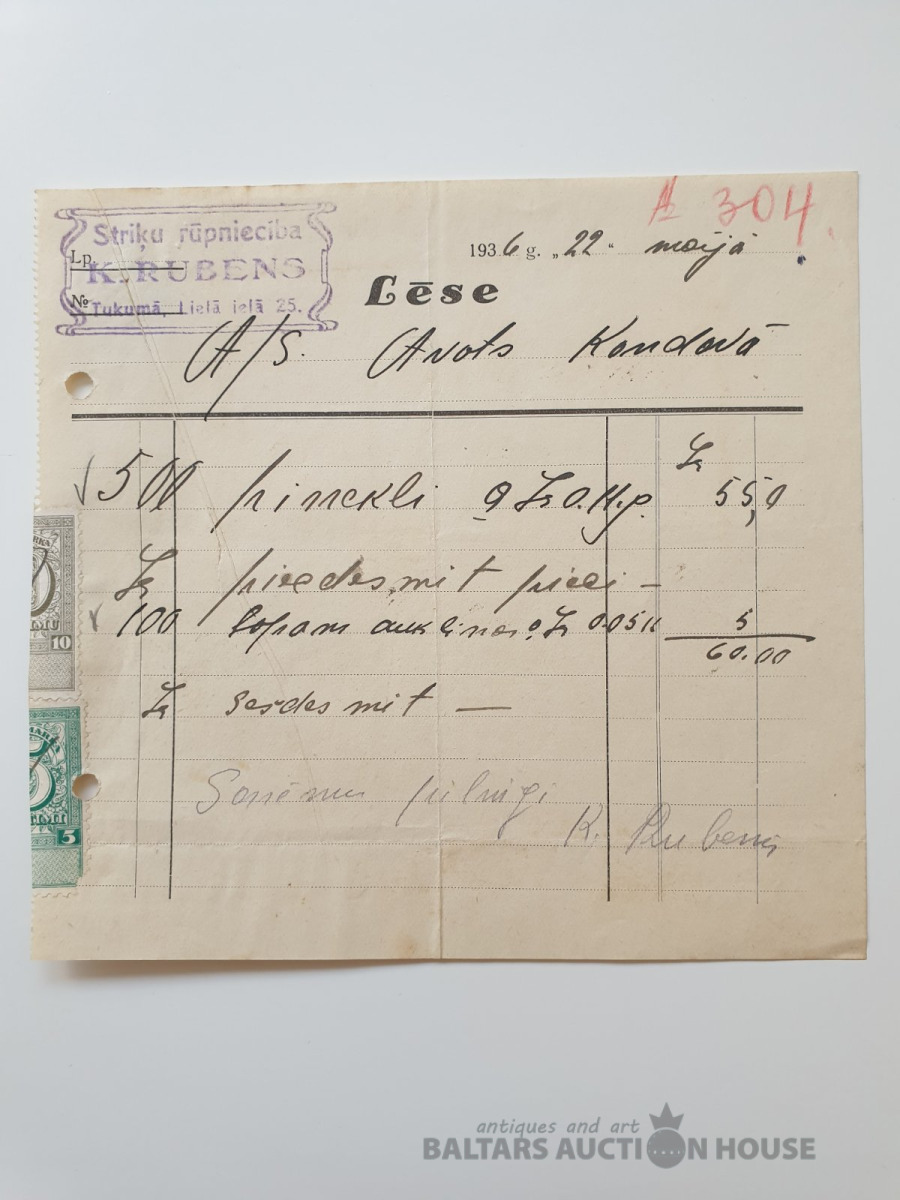 A 304
Striķu rūpniecība
Lp.
K. RUBENS
№
Tukumā, Lielā ielā 25.
1936 g. „22“ maijā
Lēse
A/S. Avots Kandavā
Ls
500 pinekli a Ls 0.11.p. 55,0
Ls piecdesmit pieci —
100 gopam auklinas a Ls 0.05 5
60.00
Ls sesdesmit —
Saņēmu pilnīgi
K. Rubens
10
5
antiques and art
BALTARS AUCTION HOUSE